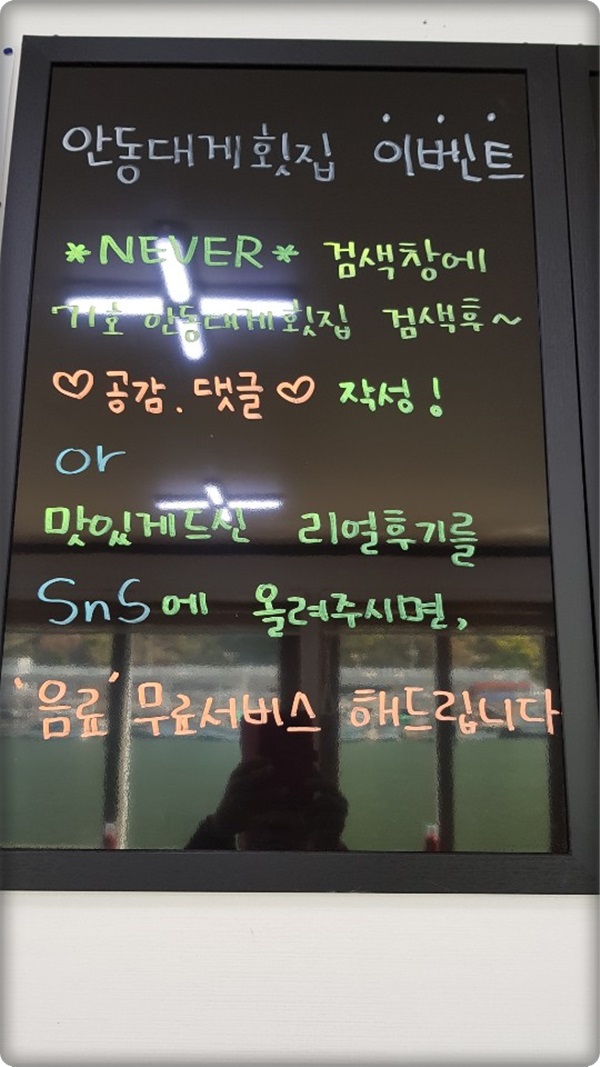 안동대게횟집 이벤트
*NEVER* 검색창에
기호 안동대게횟집 검색후~
♡공감.댓글♡ 작성!
or
맛있게드신 리얼후기를
SnS에 올려주시면,
'음료' 무료서비스 해드립니다